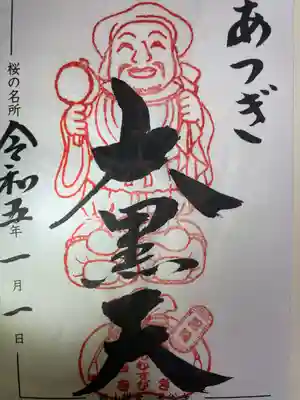 あつぎ
大黒天
桜の名所
令和五年一月一日